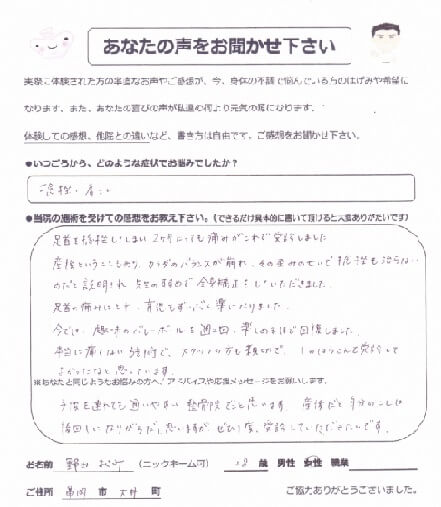 あなたの声をお聞かせ下さい
実際に体験された方の率直なお声やご感想が、今、身体の不調で悩んでいる方のはげみや希望に
なります。また、あなたの喜びの声が私達の何より元気の源になります。
体験しての感想、他院との違いなど、書き方は自由です。ご感想をお聞かせ下さい。
●いつごろから、どのような症状でお悩みでしたか?
捻挫・肩こり
●当院の施術を受けての感想をお教え下さい。(できるだけ具体的に書いて頂けると大変ありがたいです)
足首を捻挫してしまい2ヶ月たっても痛みがとれず受診しました
産後ということもあり、カラダのバランスが崩れ、その歪みのせいで捻挫も治らない
のだと説明され 先生の勧めで全身矯正をしていただきました。
足首の痛みはとれ、育児もずいぶん楽になりました。
今では、趣味のバレーボールを週2回、楽しめるほど回復しました。
本当に痛くない施術で、スタッフの方も親切で、
よかったなと思っています。
※あなたと同じようなお悩みの方へ、アドバイスや応援メッセージをお願いします。
子供を連れても通いやすい整骨院だと思います 産後だと自分のことは
後回しになりがちだと思いますが ぜひ1度、受診していただきたいです。
お名前 (ニックネーム可) 歳 男性 女性 職業
ご住所 市 町 ご協力ありがとうございました。